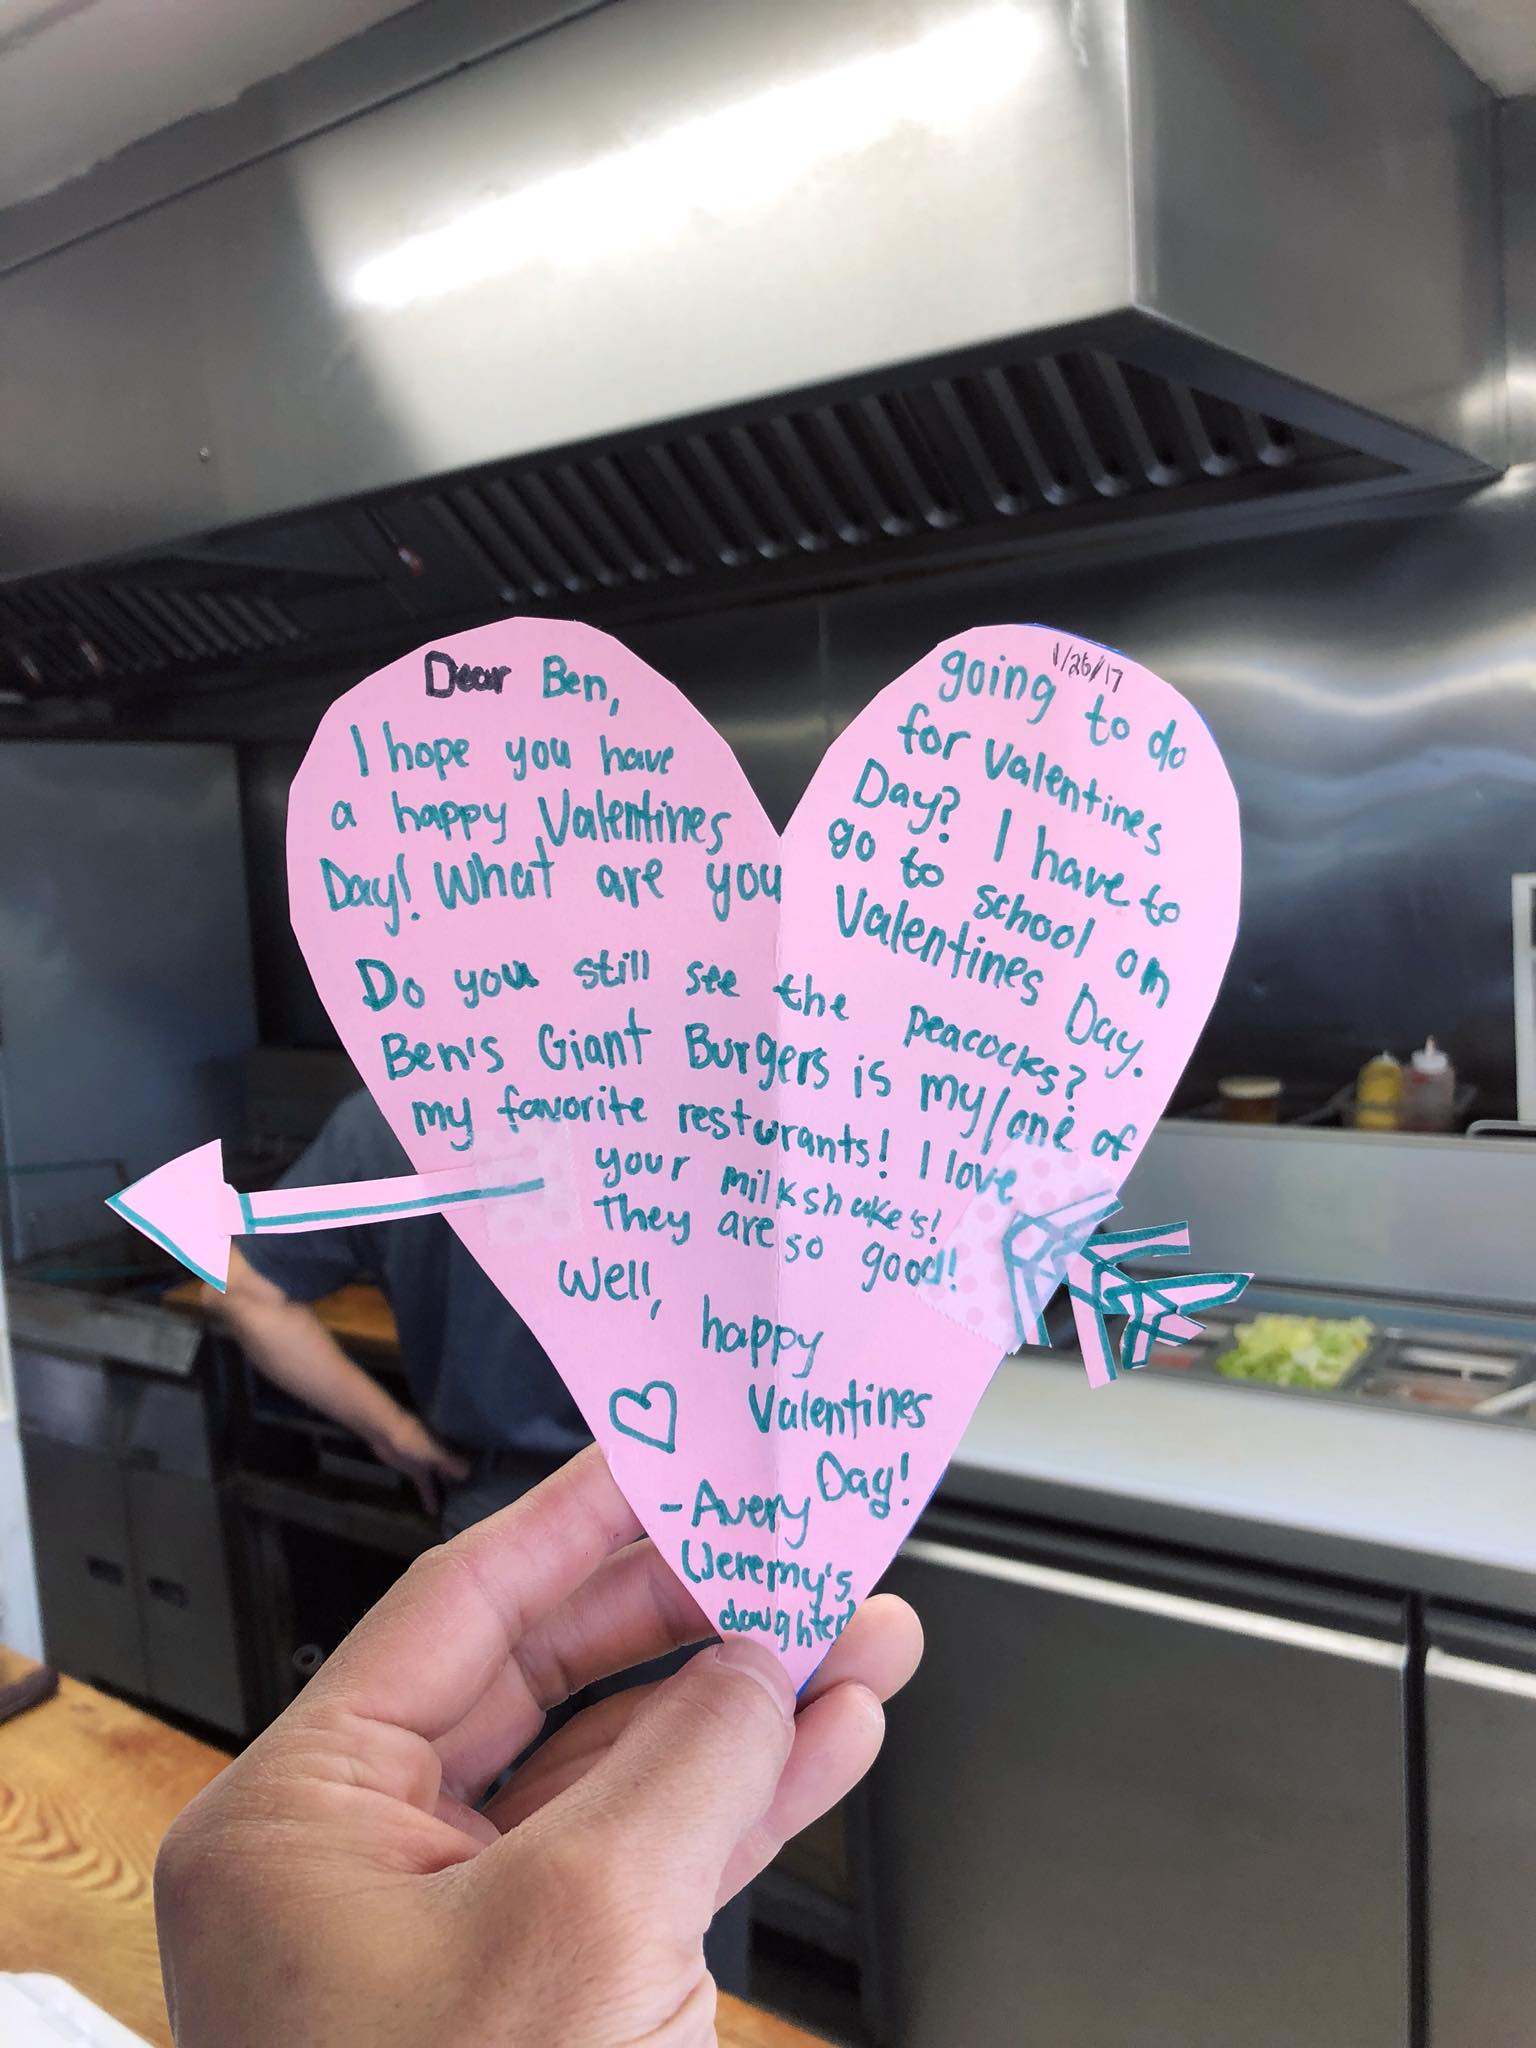 Dear Ben,
I hope you have
a happy Valentines
Day! What are you
going to do
for Valentines
Day? I have to
go to school on
Valentines Day.
Do you still see the peacocks?
Ben's Giant Burgers is my/one of
my favorite resturants! I love
your milkshake's!
They are so good!
Well,
happy
Valentines
Day!
-Avery
(Jeremy's
daughter)